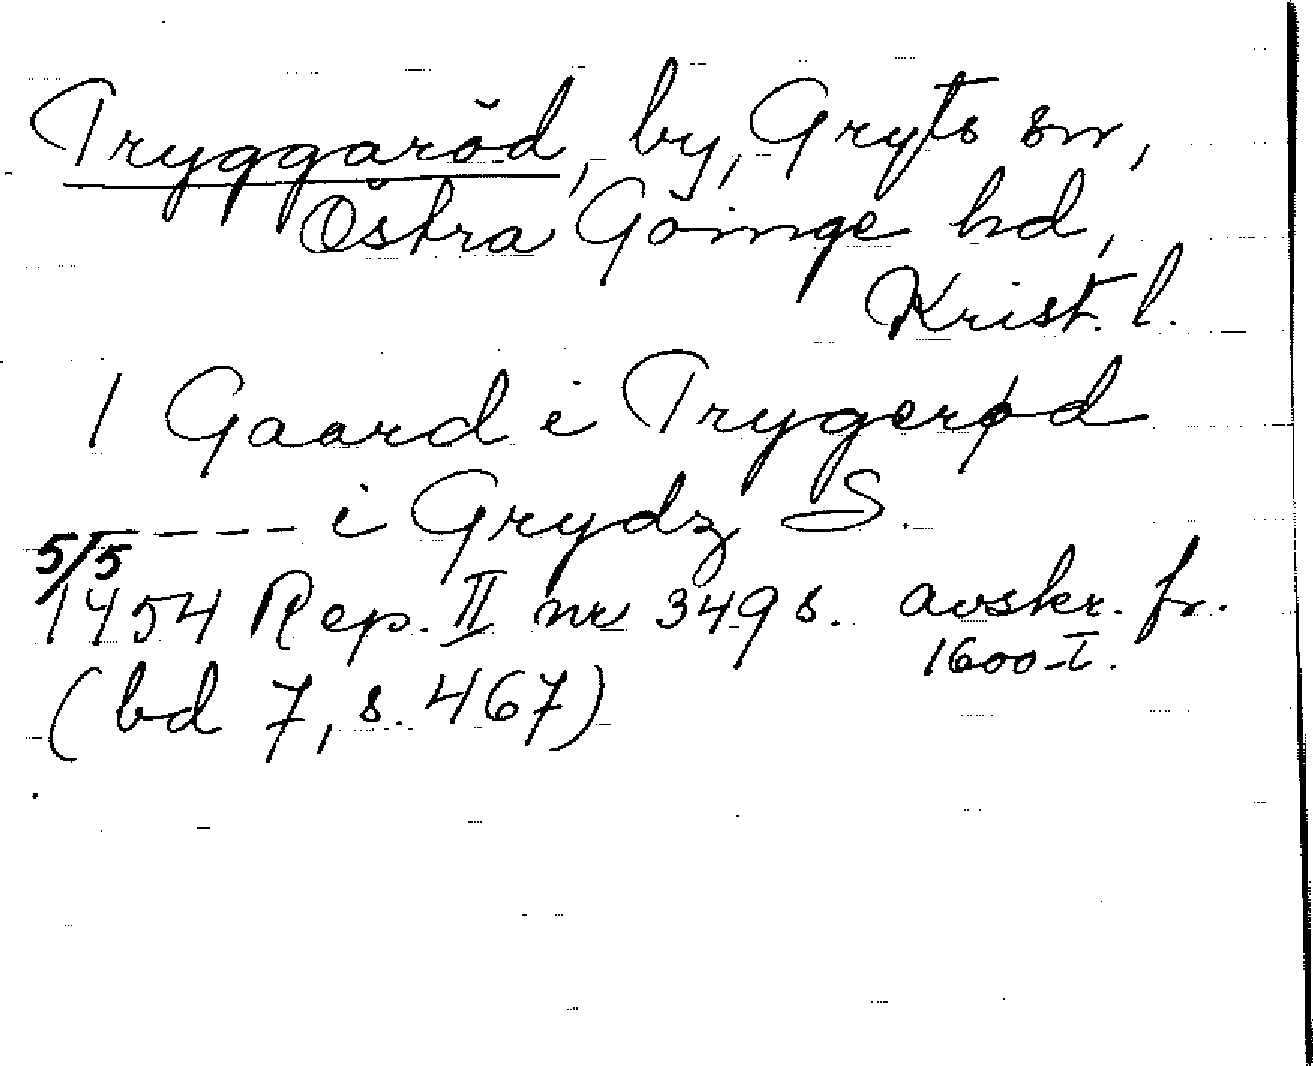 Tryggaröd, by, Gryts sn,
Östra Göinge hd,
Krist. l.
1 Gaard i Trygerød
----- i Grydz S.
5/5
1454 Rep. II nr 349 s. avskr. fr.
1600-t.
(bd 7, s. 467)